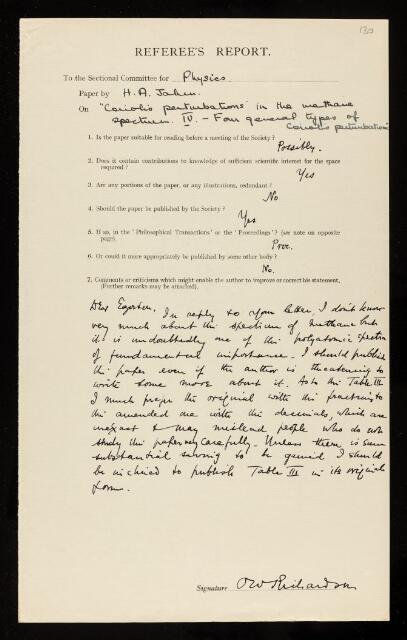 130
REFEREE'S REPORT.
To the Sectional Committee for Physics.
Paper by H. A. Jahn.
On "Coriolis perturbations in the methane
spectrum. IV. - Four general types of
Coriolis perturbations"
1. Is the paper suitable for reading before a meeting of the Society?
Possibly.
2. Does it contain contributions to knowledge of sufficient scientific interest for the space
required?
Yes
3. Are any portions of the paper, or any illustrations, redundant?
No
4. Should the paper be published by the Society?
Yes
5. If so, in the 'Philosophical Transactions' or the 'Proceedings'? (see note on opposite
page).
Proc.
6. Or could it more appropriately be published by some other body?
No.
7. Comments or criticisms which might enable the author to improve or correct his statement,
(Further remarks may be attached).
Dear Egerton, In reply to your letter, I don't know
very much about the spectrum of methane but
it is undoubtedly one of the polyatomic spectra
of fundamental importance. I should publish
the paper even if the author is threatening to
write some more about it. As to the Table III
I much prefer the original with the fractions to
the amended one with the decimals, which are
inexact & may mislead people who do not
study the paper very carefully. Unless there is some
substantial saving to be gained I should
be inclined to publish Table III in its original
form.
Signature O W Richardson